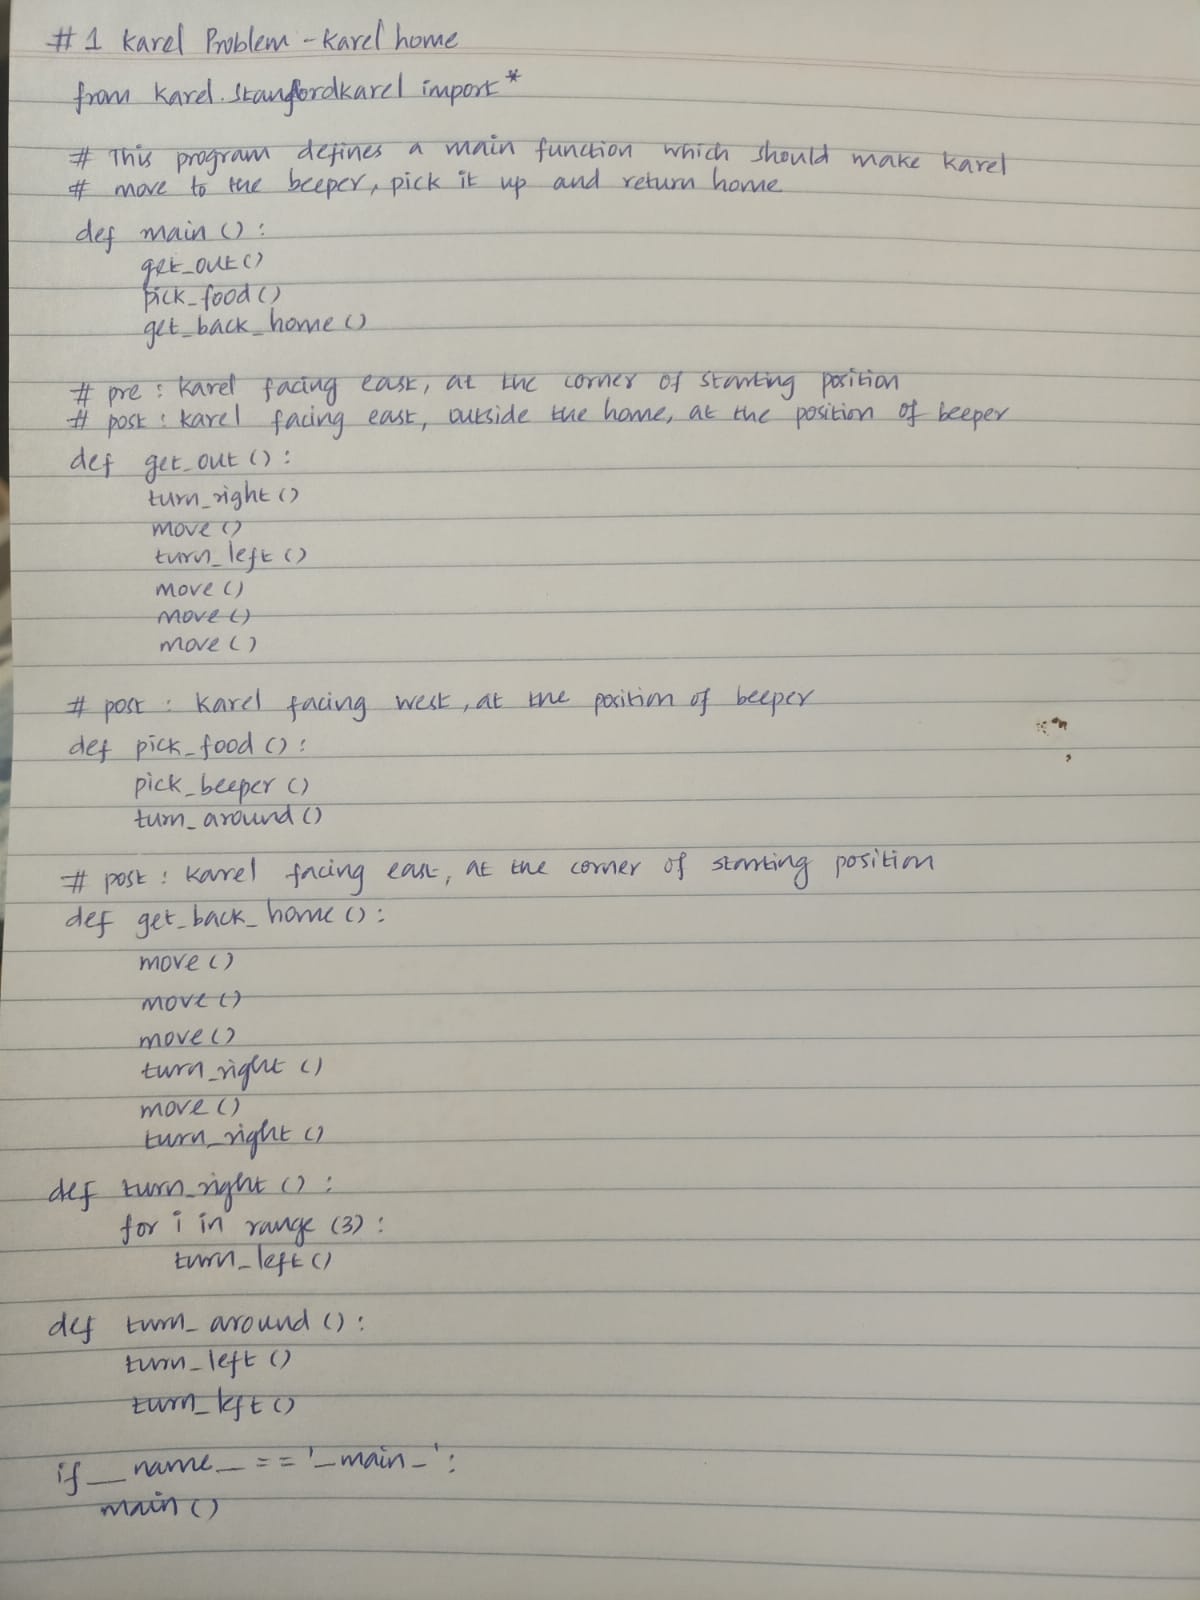 #1 Karel Problem - Karel home
from karel.stanfordkarel import *
# This program defines a main function which should make karel
# move to the beeper, pick it up and return home
def main():
    get_out()
    pick_food()
    get_back_home()
# pre : Karel facing east, at the corner of starting position
# post : karel facing east, outside the home, at the position of beeper
def get_out():
    turn_right()
    move()
    turn_left()
    move()
    move()
    move()
# post : Karel facing west, at the position of beeper
def pick_food():
    pick_beeper()
    turn_around()
# post : Karel facing east, at the corner of starting position
def get_back_home():
    move()
    move()
    move()
    turn_right()
    move()
    turn_right()
def turn_right():
    for i in range(3):
        turn_left()
def turn_around():
    turn_left()
    turn_left()
if __name_ == '_main_':
    main()